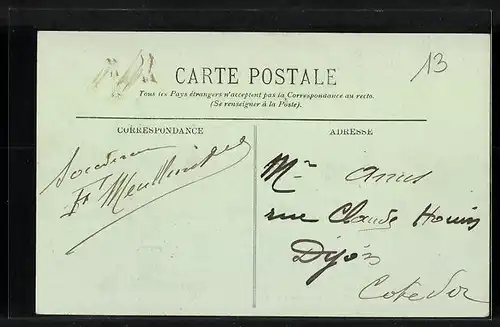 13
CARTE POSTALE
Tous les Pays étrangers n'acceptent pas la Correspondance au recto.
(Se renseigner à la Poste).
CORRESPONDANCE
ADRESSE
Mr
rue Claude
Dijon
Cote d'or